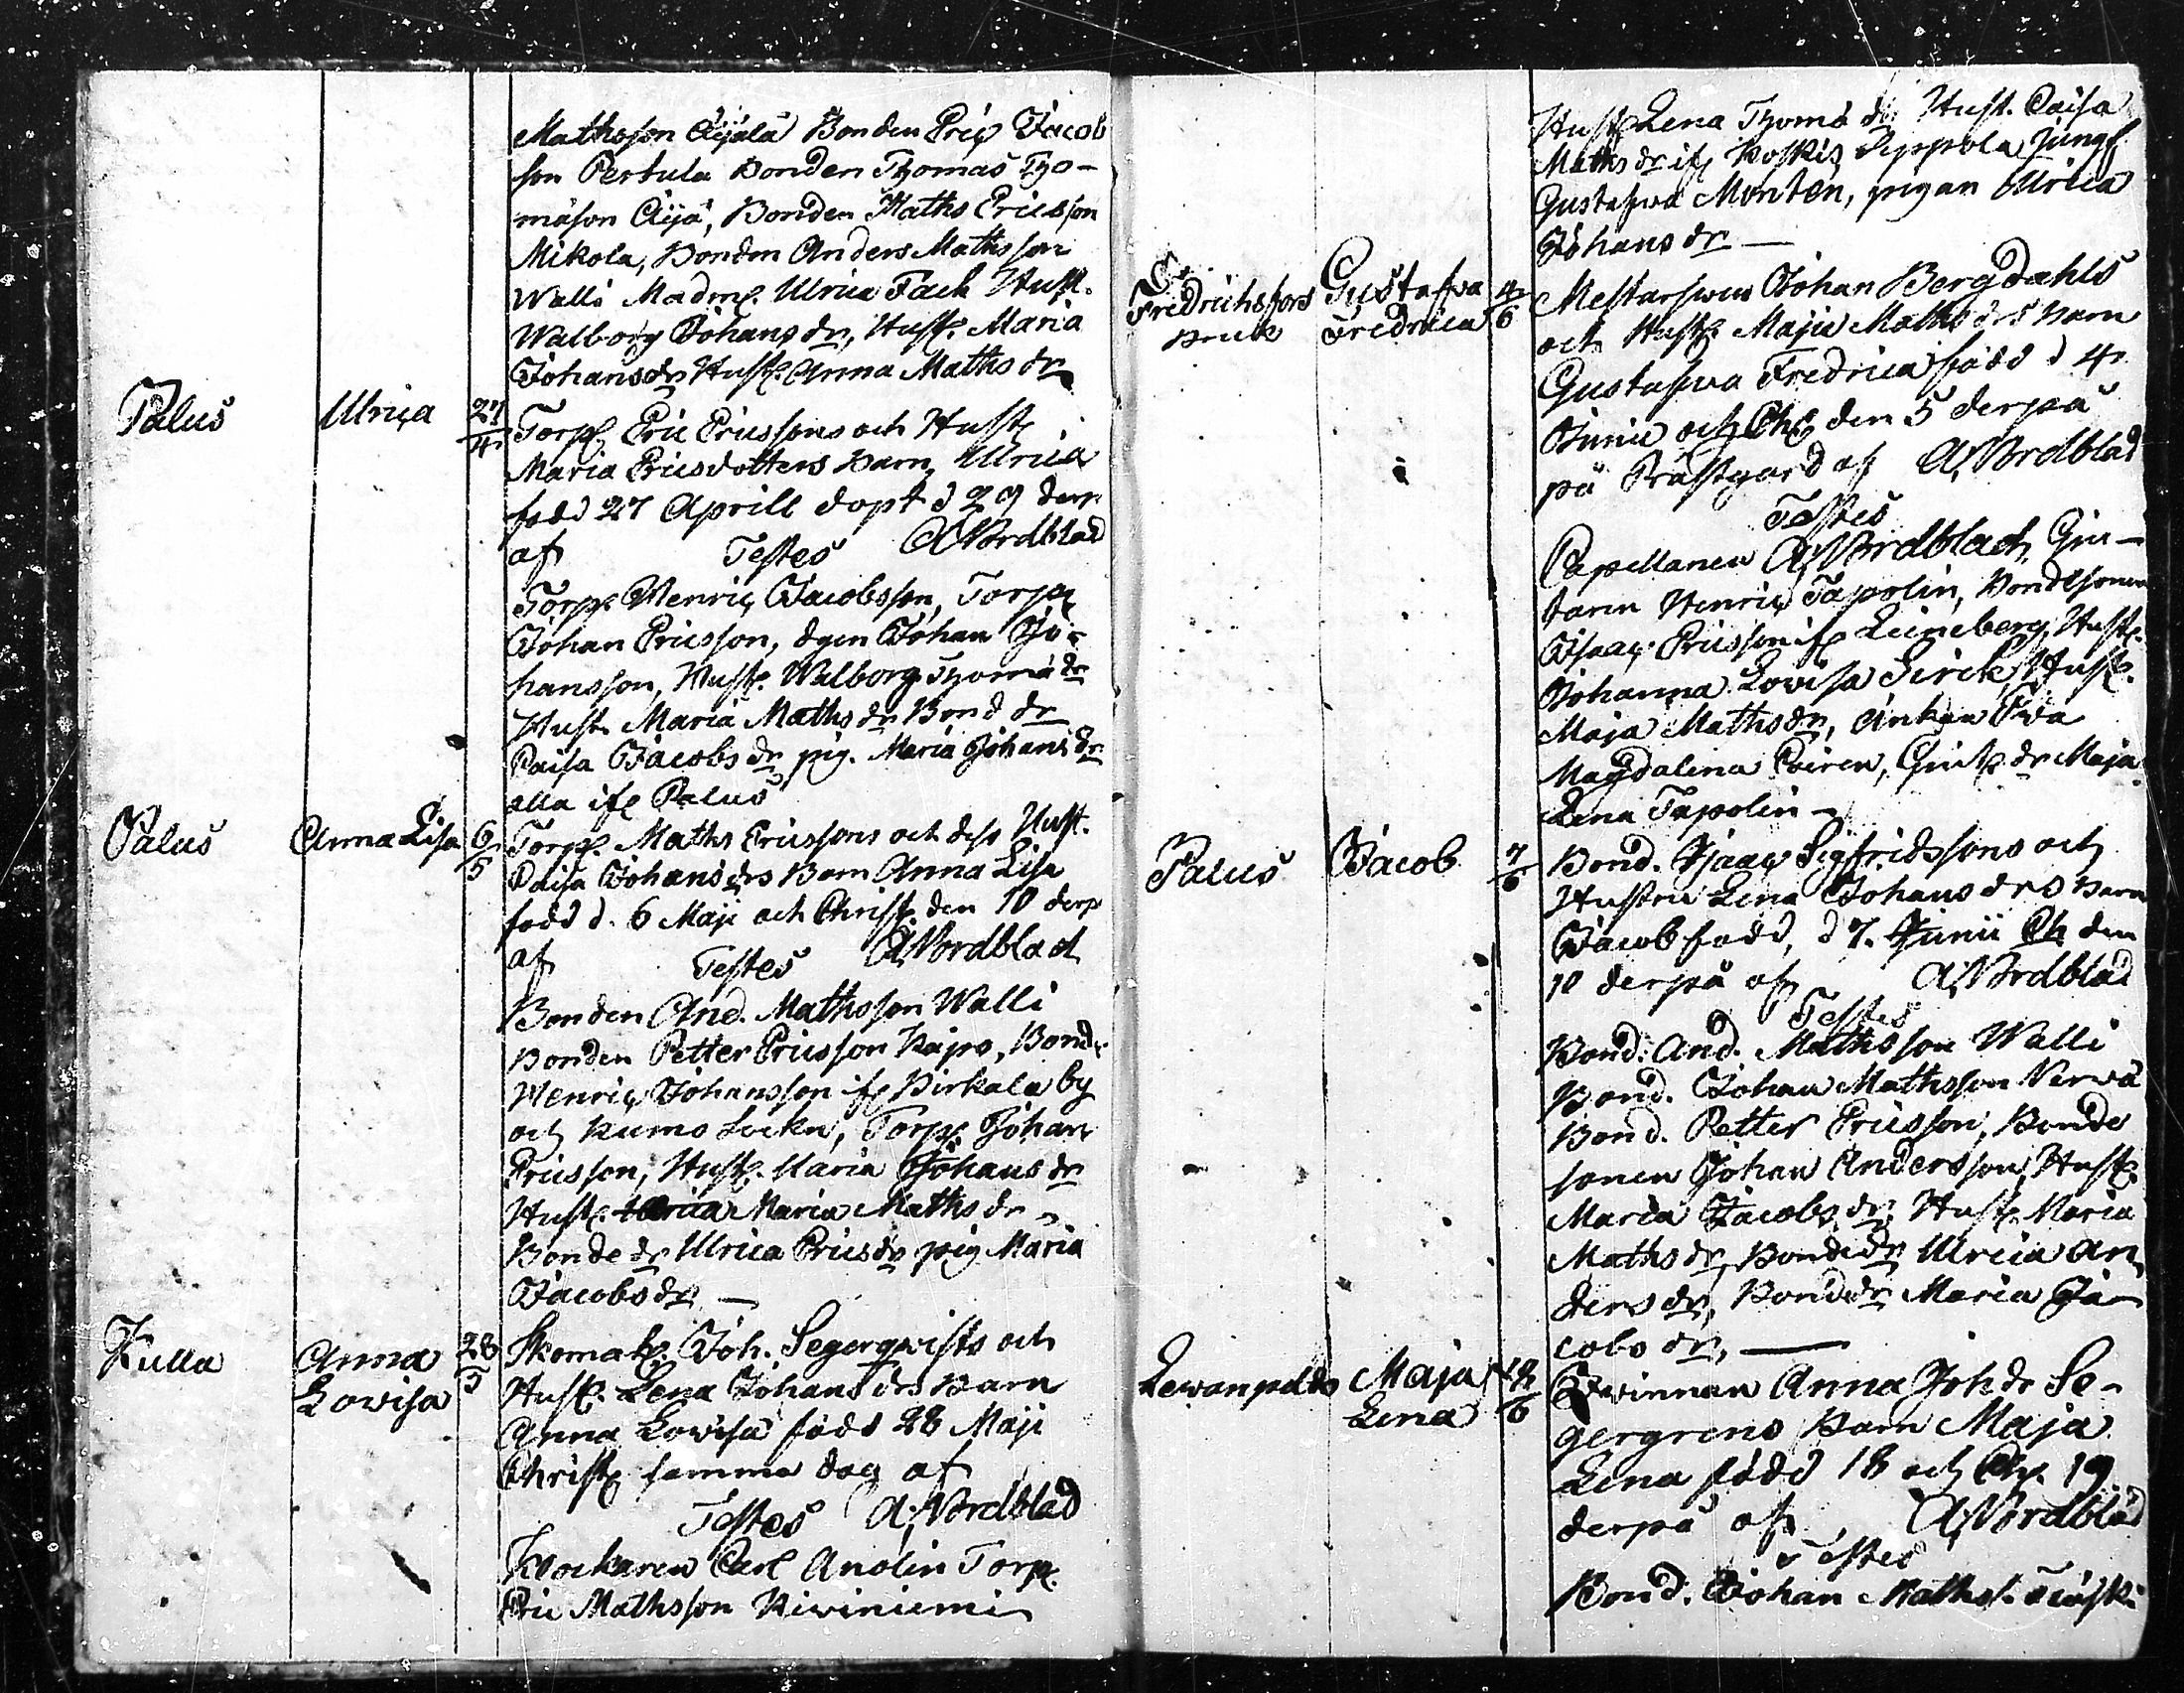 Mathsson Äijälä Bonden Eric Jacob
son Pertula Bonden Thomas Tho-
mäson Äijä, Bonden Maths Ericsson
Mikola, Bonden Anders Mathsson
Walli Madm. Ulrica Fack Hust.
Walborg Johansdr, Hust. Maria
Johansdr Hust. Anna Mathsdr
Palus Ulrica 27/4 Torp. Eric Ericssons och Hust.
Maria Ericsdotters Barn Ulrica
född 27 Aprill döpt d 29 derp
af Testes A Nordblad
Torp. Henric Jacobsson, Torp.
Johan Ericsson, Johan Jo-
hansson, Hust. Walborg Thomädr
Hust. Maria Mathsdr Bonddr
Caisa Jacobsdr pig. Maria Johansdr
alla if. Palus
Palus Anna Lisa 6/5 Torp. Maths Ericssons och dess Hust.
Caisa Johansdrs Barn Anna Lisa
född d. 6 Maji och Christ. den 10 derp
af Testes A Nordblad
Bonden And. Mathsson Walli
Bonden Petter Ericsson Bond.
Henric Johansson if. Pirkala by
och Kumo Sockn, Torp. Johan
Ericsson, Hust. Maria Johansdr
Hust. Maria Mathsdr
Bondedr Ulrica Ericsdr pig Maria
Jacobsdr —
Kulla Anna Lovisa 28/5 Skomak. Joh. Segerqvists och
Hust. Lena Johansdrs Barn
Anna Lovisa född 28 Maji
Christ. samma dag af
Testes A, Nordblad
Carl Anolin Torp.
Eric Mathsson Kiviniemi
Hust. Lena Thomädr Hust. Caisa
Mathsdr if. Koskis Seppola Jungf
Gustafva Monten, pigan Ulrica
Johansdr —
Fredrichsfors Bruk Gustafva Fredrica 4/6 Mestarsven Johan Bergdahls
och Hust. Maja Mathsdrs Barn
Gustafva Fredrica född d 4
Junii och Ch. den 5 derpå
på Prästgård af A, Nordblad
Testes
Capellanen A, Nordblad, Giu-
taren Henric Tapolin, Bondsonen
Isaac Ericsson if. Leineberg, Hust.
Johanna Lovisa Sirck, Hust.
Maja Mathsdr, Änkan Eva
Magdalena Giut. dr Maja
Lena Tapolin —
Palus Jacob 7/6 Bond. Isaac Sigfridssons och
Hustru Lena Johansdrs Barn
Jacob född, d 7. Junii Ch den
10 derpå af A, Nordblad
Testes
Bond: And. Mathsson Walli
Bond. Johan Mathsson Nervä
Bond. Petter Ericsson, Bonde
sonen Johan Andersson, Hust.
Maria Jacobsdr, Hust. Maria
Mathsdr, Bondedr Ulrica An
dersdr, Bonddr Maria Ja-
cobsdr, —
Levanpelds Maja Lena 18/6 Qvinnan Anna Joh dr Se-
gergrens Barn Maja
Lena född 18 och Chr. 19
derpå af A, Nordblad
Testes
Bond. Johan Maths.